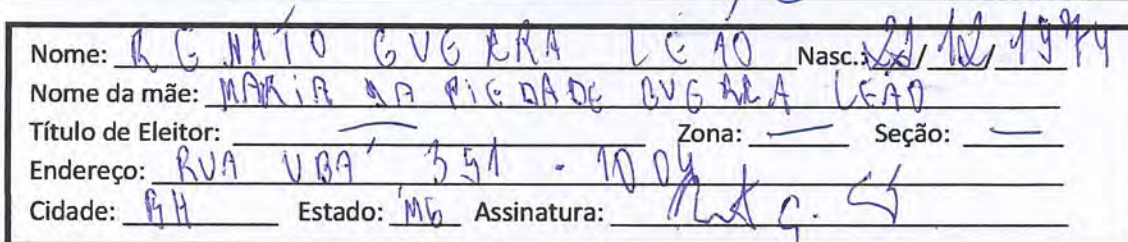 Nome: RENATO GUERRA LEÃO Nasc.: 21/12/1974
Nome da mãe: MARIA DA PIEDADE GUERRA LEÃO
Título de Eleitor: — Zona: — Seção: —
Endereço: RUA UBÁ 351 - 1004
Cidade: BH Estado: MG Assinatura: